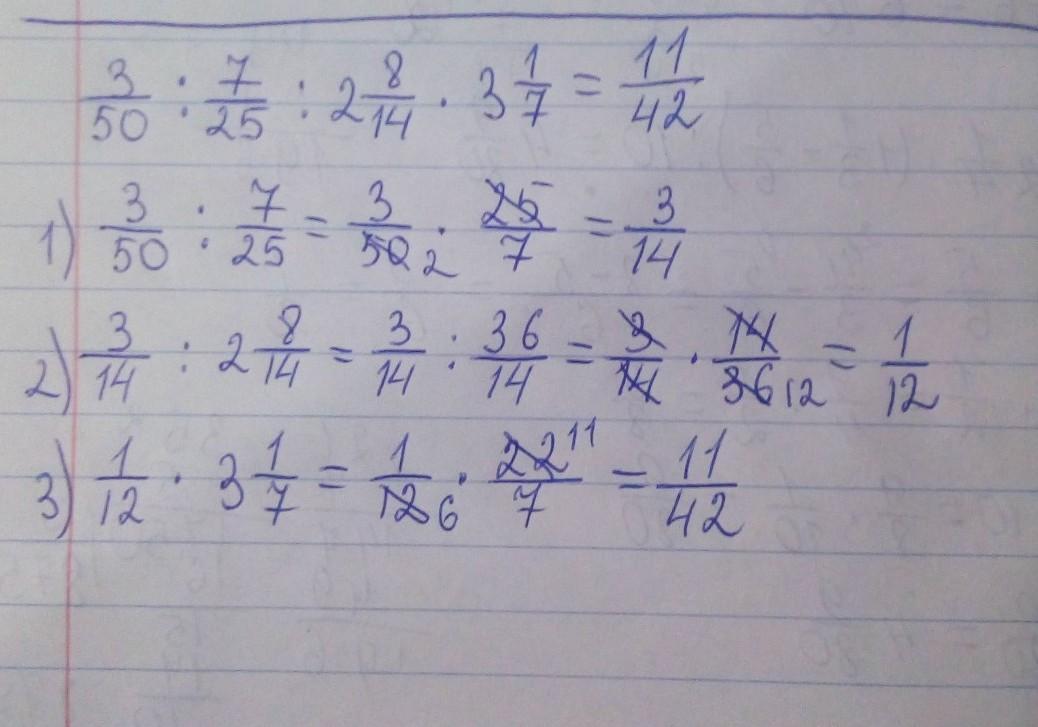 3/50 : 7/25 : 2 8/14 · 3 1/7 = 11/42
1) 3/50 : 7/25 = 3/50 2 · 25/7 = 3/14
2) 3/14 : 2 8/14 = 3/14 : 36/14 = 3/14 · 14/36 12 = 1/12
3) 1/12 · 3 1/7 = 1/12 6 · 22 11/7 = 11/42